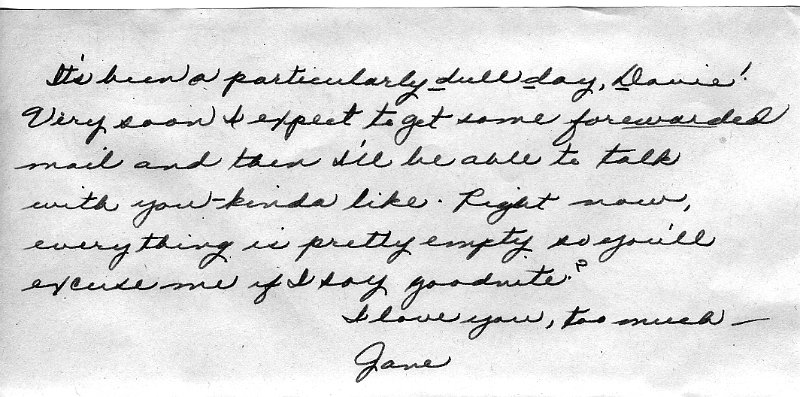 It's been a particularly dull day, Davie!
Very soon I expect to get some forewarded
mail and then I'll be able to talk
with you-kinda like. Right now,
everything is pretty empty so you'll
excuse me if I say goodnite.?
I love you, too much —
Jane